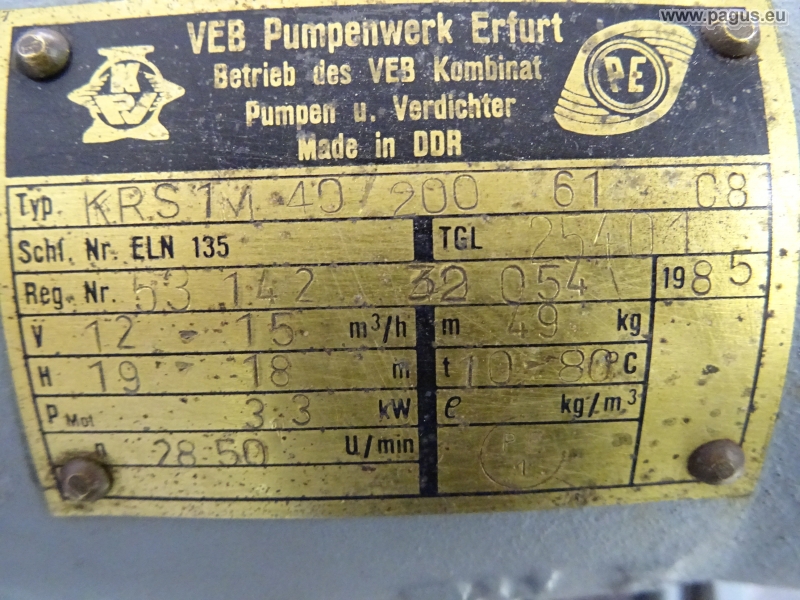 www.pagus.eu
VEB Pumpenwerk Erfurt
Betrieb des VEB Kombinat
Pumpen u. Verdichter
Made in DDR
PE
Typ. KRS1M 40/200 61 C8
Schl. Nr. ELN 135 TGL 25401
Reg. Nr. 53 142 32 054 1985
V 12 - 15 m³/h m 49 kg
H 19 - 18 m t 10 - 80 °C
P Mot 3,3 kW ϱ kg/m³
n 2850 U/min